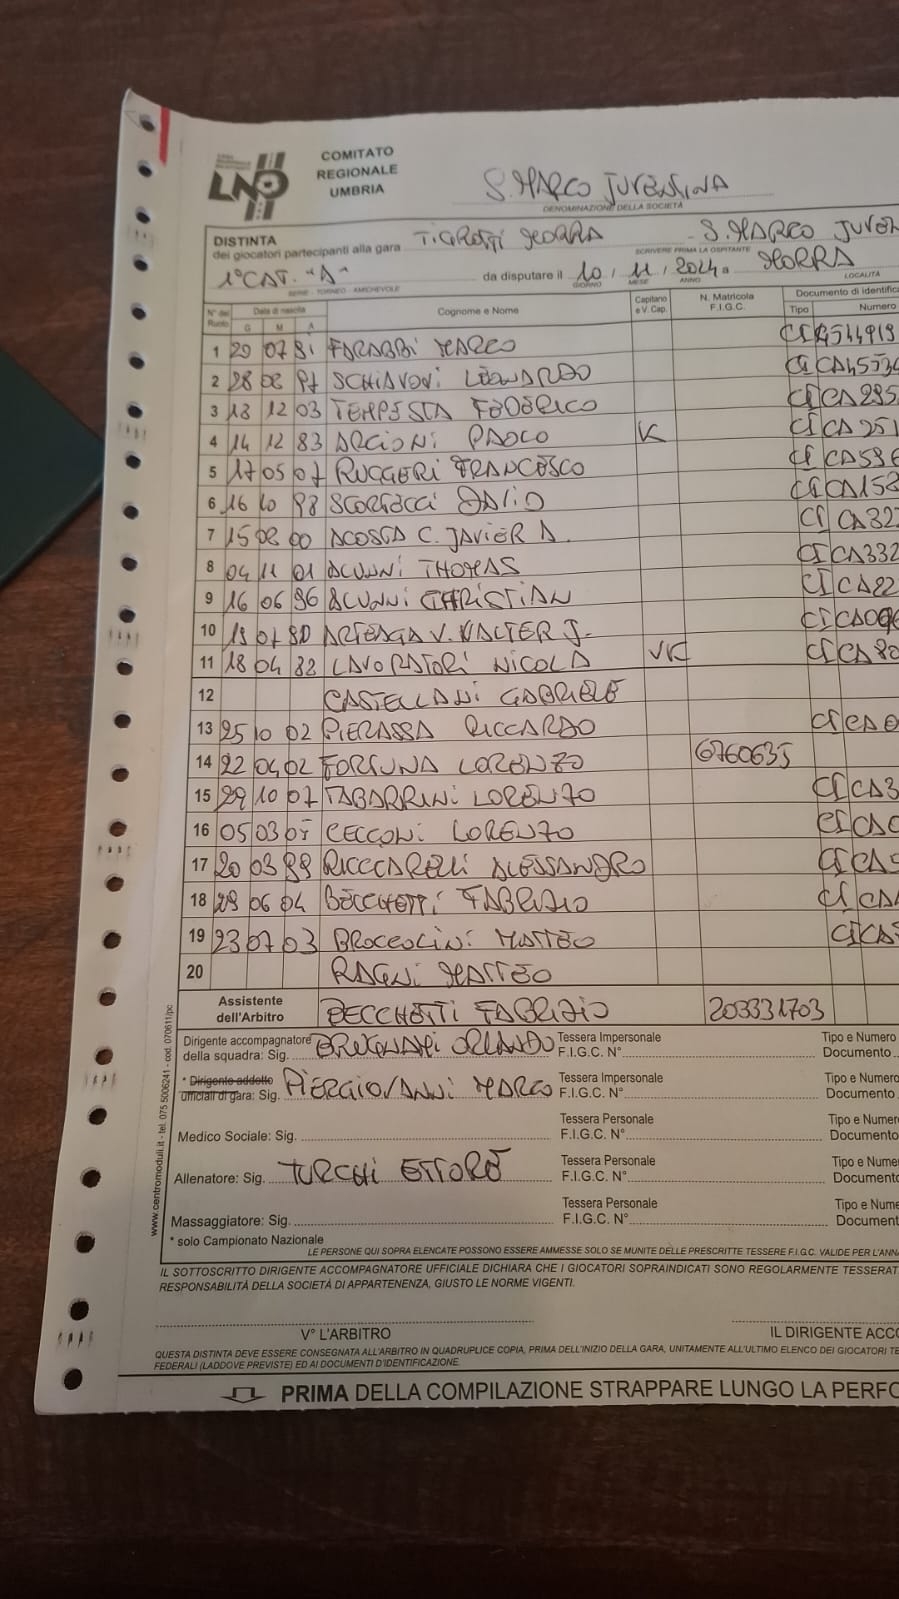 COMITATO
REGIONALE
UMBRIA
LND
S. MARCO JUVENTINA
DENOMINAZIONE DELLA SOCIETÀ
DISTINTA
dei giocatori partecipanti alla gara TIGROTTI MORRA - S. MARCO JUVEN
SCRIVERE PRIMA LA OSPITANTE
1° CAT. "A" da disputare il 10 / 11 / 2024 a MORRA
SERIE - TORNEO - AMICHEVOLE GIORNO MESE ANNO LOCALITÀ
N° del Ruolo Data di nascita G M A Cognome e Nome Capitano e V. Cap. N. Matricola F.I.G.C. Documento di identifica Tipo Numero
1 29 07 91 FARABBI MARCO CI 4544919
2 28 02 97 SCHIAVONI LEONARDO CI CA4553
3 13 12 03 TEMPESTA FEDERICO CI CA295
4 14 12 83 ARCIONI PAOLO K CI CA251
5 17 05 07 RUGGERI FRANCESCO CI CA596
6 16 10 98 SCORTECCI DALIO CI CA158
7 15 08 00 ACOSTA C. JAVIER A. CI CA32
8 04 11 01 ALUNNI THOMAS CI CA332
9 16 06 96 ALUNNI CHRISTIAN CI CA22
10 19 07 90 ARTEAGA V. WALTER J. CI CA0
11 18 04 92 LAVORATORI NICOLA VK CI CA80
12 CASTELLANI GABRIELE
13 25 10 02 PIERASSA RICCARDO CI CA0
14 22 04 02 FORTUNA LORENZO 6760635
15 29 10 07 TABARRINI LORENZO CI CA3
16 05 03 CECCONI LORENZO CI CA
17 20 03 99 RICCCARELLI ALESSANDRO CI CA
18 29 06 04 BECCHETTI FABRIZIO CI CA
19 23 07 03 BROCCOLINI MATTEO CI CA
20 RAGNI MATTEO
Assistente
dell'Arbitro BECCHETTI FABRIZIO 203331703
Dirigente accompagnatore Tessera Impersonale Tipo e Numero
della squadra: Sig. BRUGNAMI ORLANDO F.I.G.C. N° Documento
* Dirigente addetto Tessera Impersonale Tipo e Numero
ufficiali di gara: Sig. PIERGIOVANNI MARCO F.I.G.C. N° Documento
Tessera Personale Tipo e Numer
Medico Sociale: Sig. F.I.G.C. N° Documento
Tessera Personale Tipo e Nume
Allenatore: Sig. TURCHI ETTORE F.I.G.C. N° Document
Tessera Personale Tipo e Nume
Massaggiatore: Sig. F.I.G.C. N° Document
* solo Campionato Nazionale
LE PERSONE QUI SOPRA ELENCATE POSSONO ESSERE AMMESSE SOLO SE MUNITE DELLE PRESCRITTE TESSERE F.I.G.C. VALIDE PER L'ANN
IL SOTTOSCRITTO DIRIGENTE ACCOMPAGNATORE UFFICIALE DICHIARA CHE I GIOCATORI SOPRAINDICATI SONO REGOLARMENTE TESSERAT
RESPONSABILITÀ DELLA SOCIETÀ DI APPARTENENZA, GIUSTO LE NORME VIGENTI.
V° L'ARBITRO IL DIRIGENTE ACCO
QUESTA DISTINTA DEVE ESSERE CONSEGNATA ALL'ARBITRO IN QUADRUPLICE COPIA, PRIMA DELL'INIZIO DELLA GARA, UNITAMENTE ALL'ULTIMO ELENCO DEI GIOCATORI TE
FEDERALI (LADDOVE PREVISTE) ED AI DOCUMENTI D'IDENTIFICAZIONE.
PRIMA DELLA COMPILAZIONE STRAPPARE LUNGO LA PERFO
www.centromoduli.it - tel. 075 5006241 - cod. 070611/pc